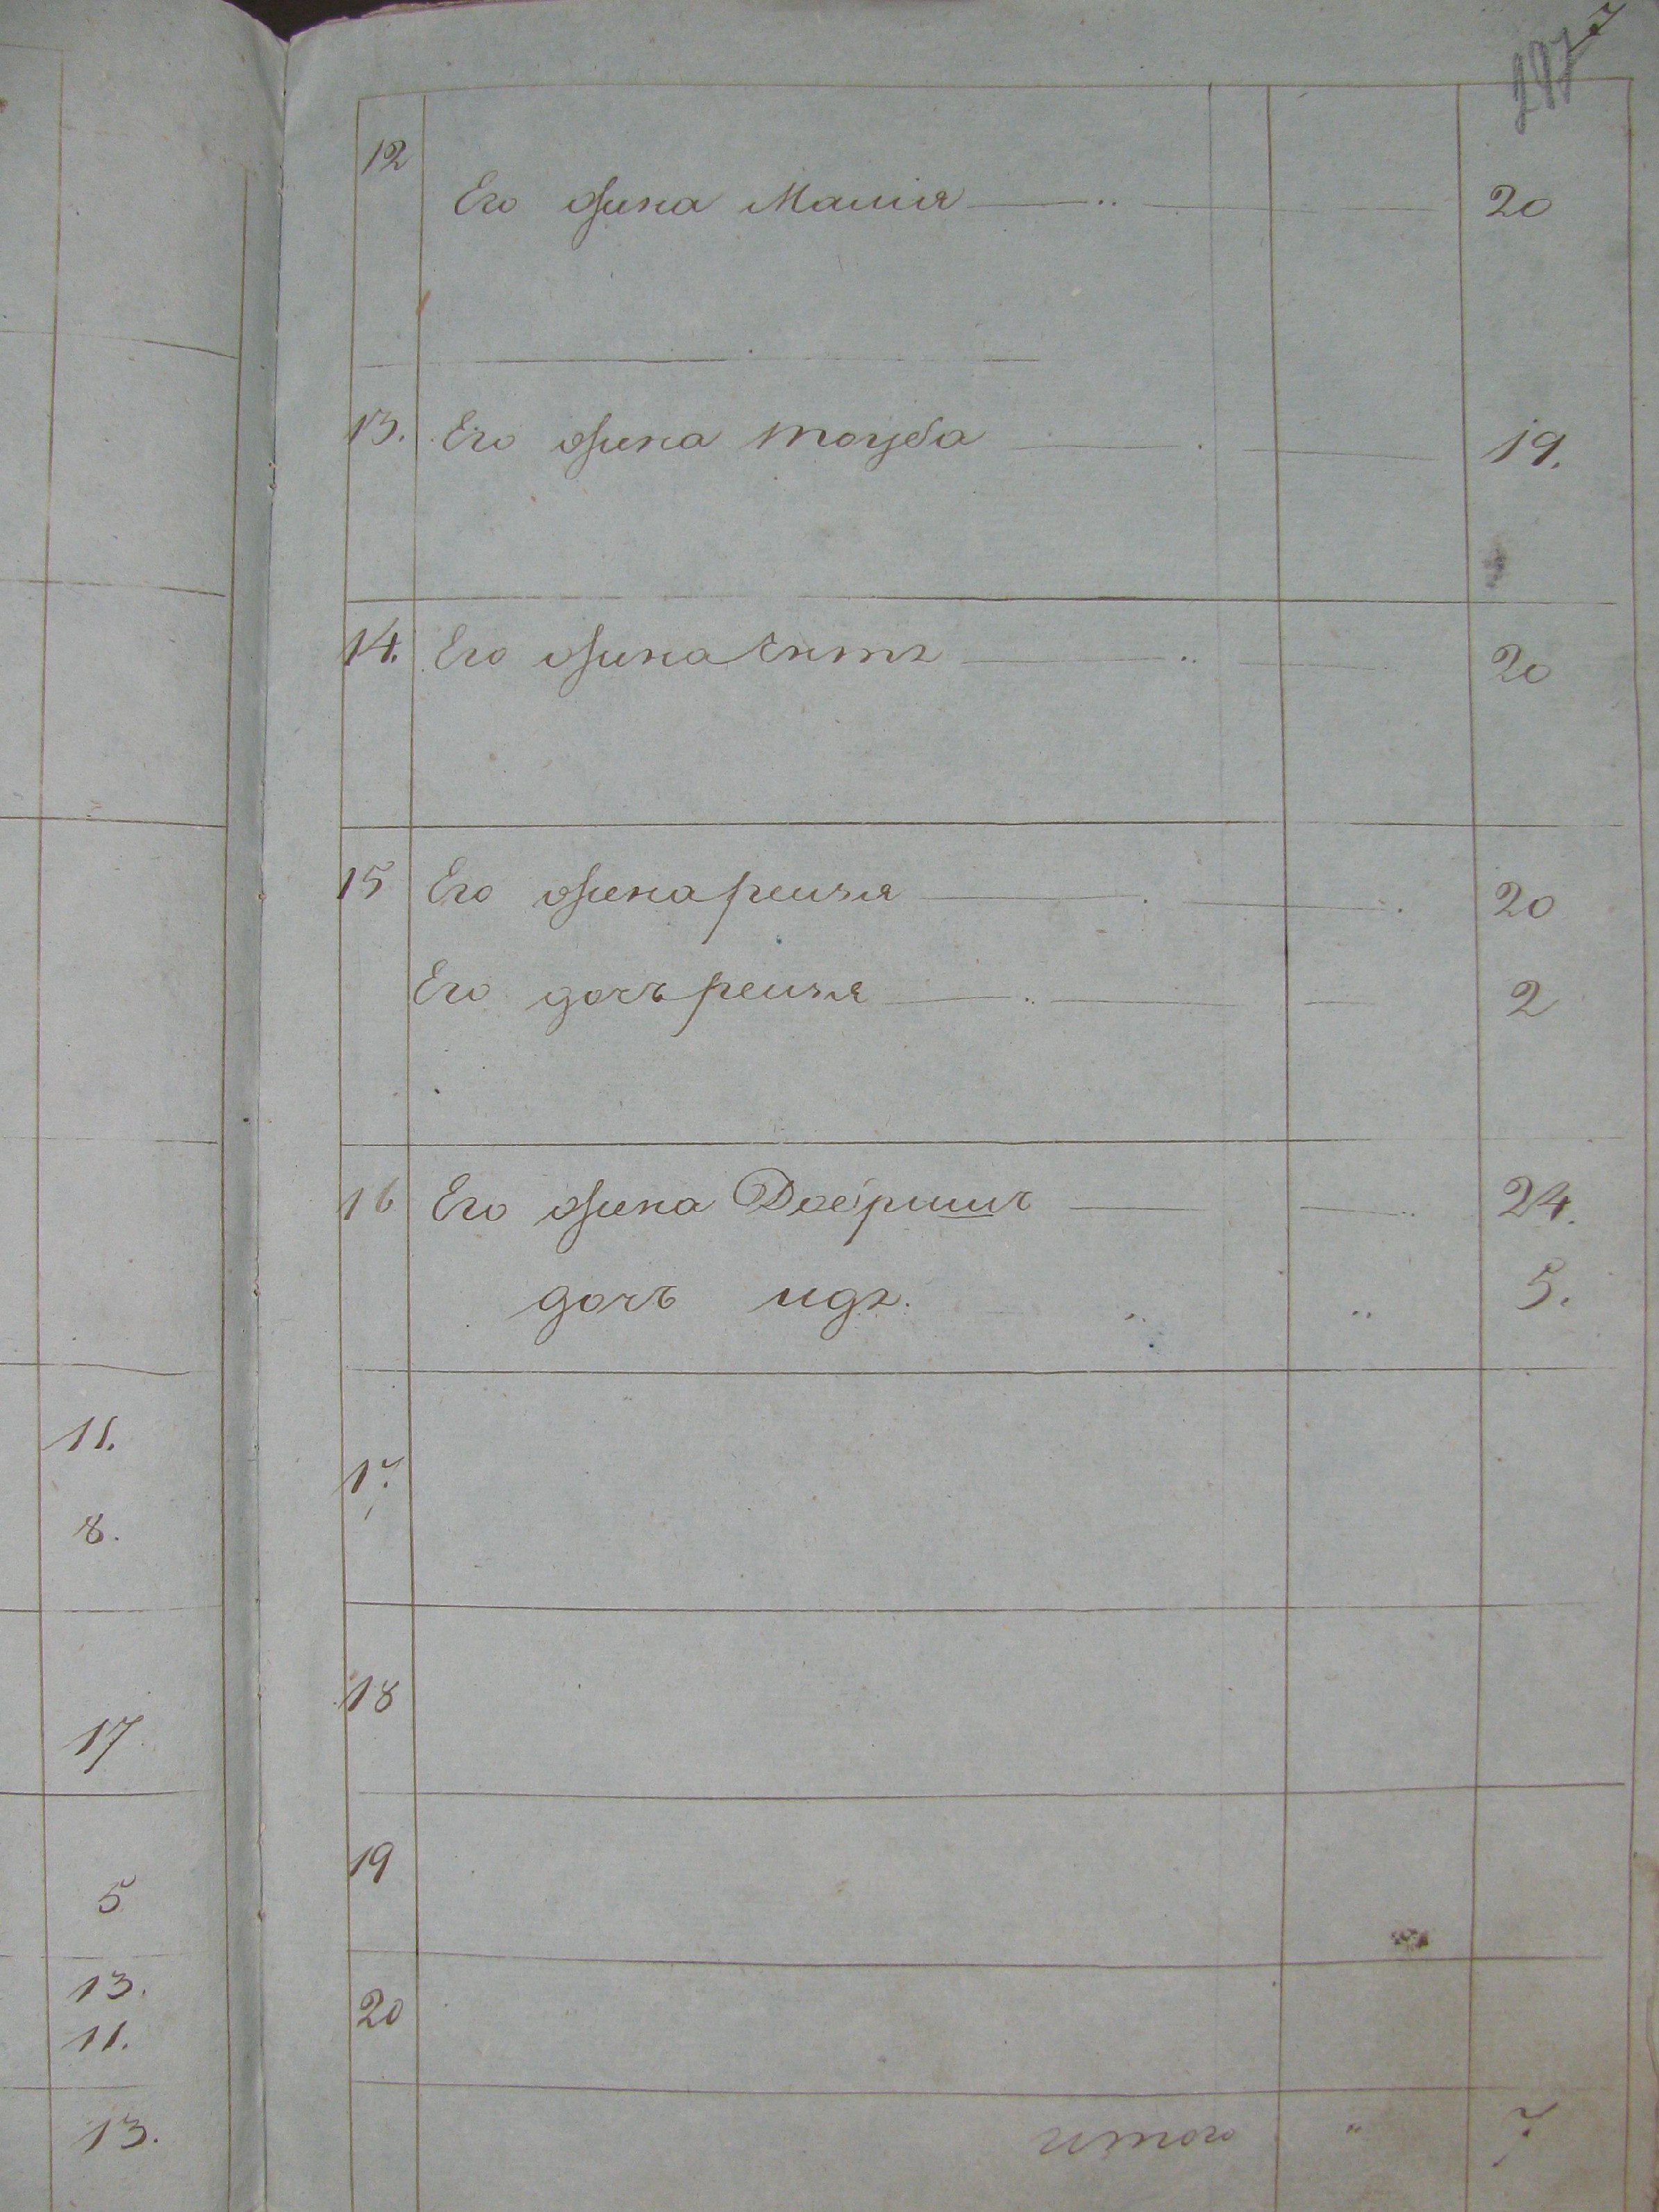 7
197
12
Его жена Машя 20
13. Его жена Тоуба 19.
14. Его жена Ента 20
15 Его жена Рейзя 20
Его дочь Рейзя 2
16 Его жена Двейришь 24.
дочь Ида. 5.
17.
18
19
20
итого " 7
11.
8.
17
5
13.
11.
13.